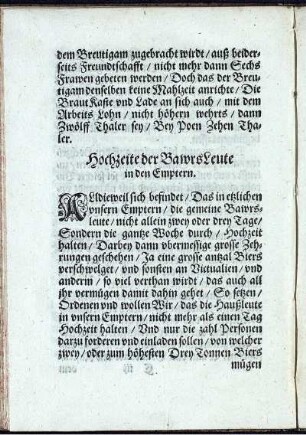 dem Breutigam zugebracht wirdt / auß beider-
seits Freundtschafft / nicht mehr dann Sechs
Frawen gebeten werden / Doch das der Breu-
tigam denselben keine Mahlzeit anrichte / Die
Braut Kaste vnd Lade an sich auch / mit dem
Arbeits Lohn / nicht höhern wehrts / dann
Zwölff Thaler sey / Bey Poen Zehen Tha-
ler.
Hochzeite der BawrsLeute
in den Emptern.
ALldieweil sich befindet / Das in etzlichen
vnsern Emptern / die gemeine Bawrs-
leute / nicht allein zwey oder drey Tage /
Sondern die gantze Woche durch / Hochzeit
halten / Darbey dann vbermessige grosse Zeh-
rungen geschehen / Ja eine grosse antzal Biers
verschwelget / vnd sonsten an Victualien / vnd
anderm / so viel verthan wirdt / das auch all
jhr vermügen damit dahin gehet / So setzen /
Ordenen vnd wollen Wir / das die Haußleute
in vnsern Emptern / nicht mehr als einen Tag
Hochzeit halten / Vnd nur die zahl Personen
darzu forderen vnd einladen sollen / von welcher
zwey / oder zum höhesten Drey Tonnen Biers
mügen